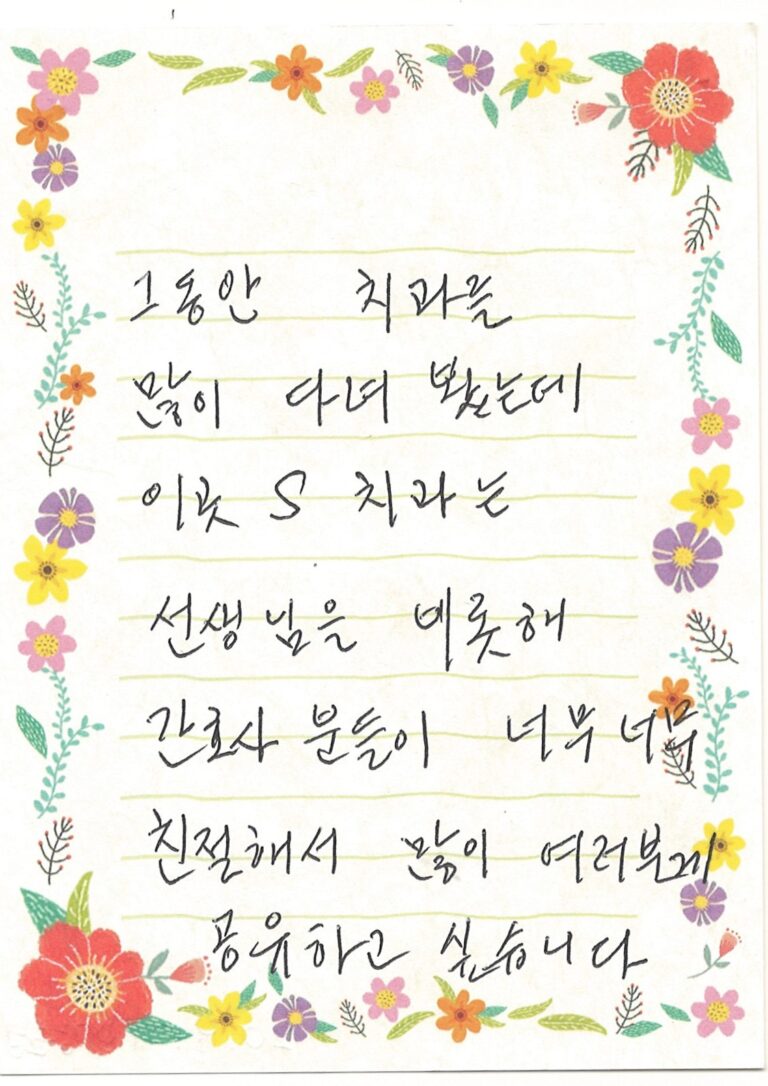 그동안 치과를
많이 다녀 봤는데
이곳 S 치과는
선생님을 비롯해
간호사 분들이 너무너무
친절해서 많이 여러부게
공유하고 싶습니다